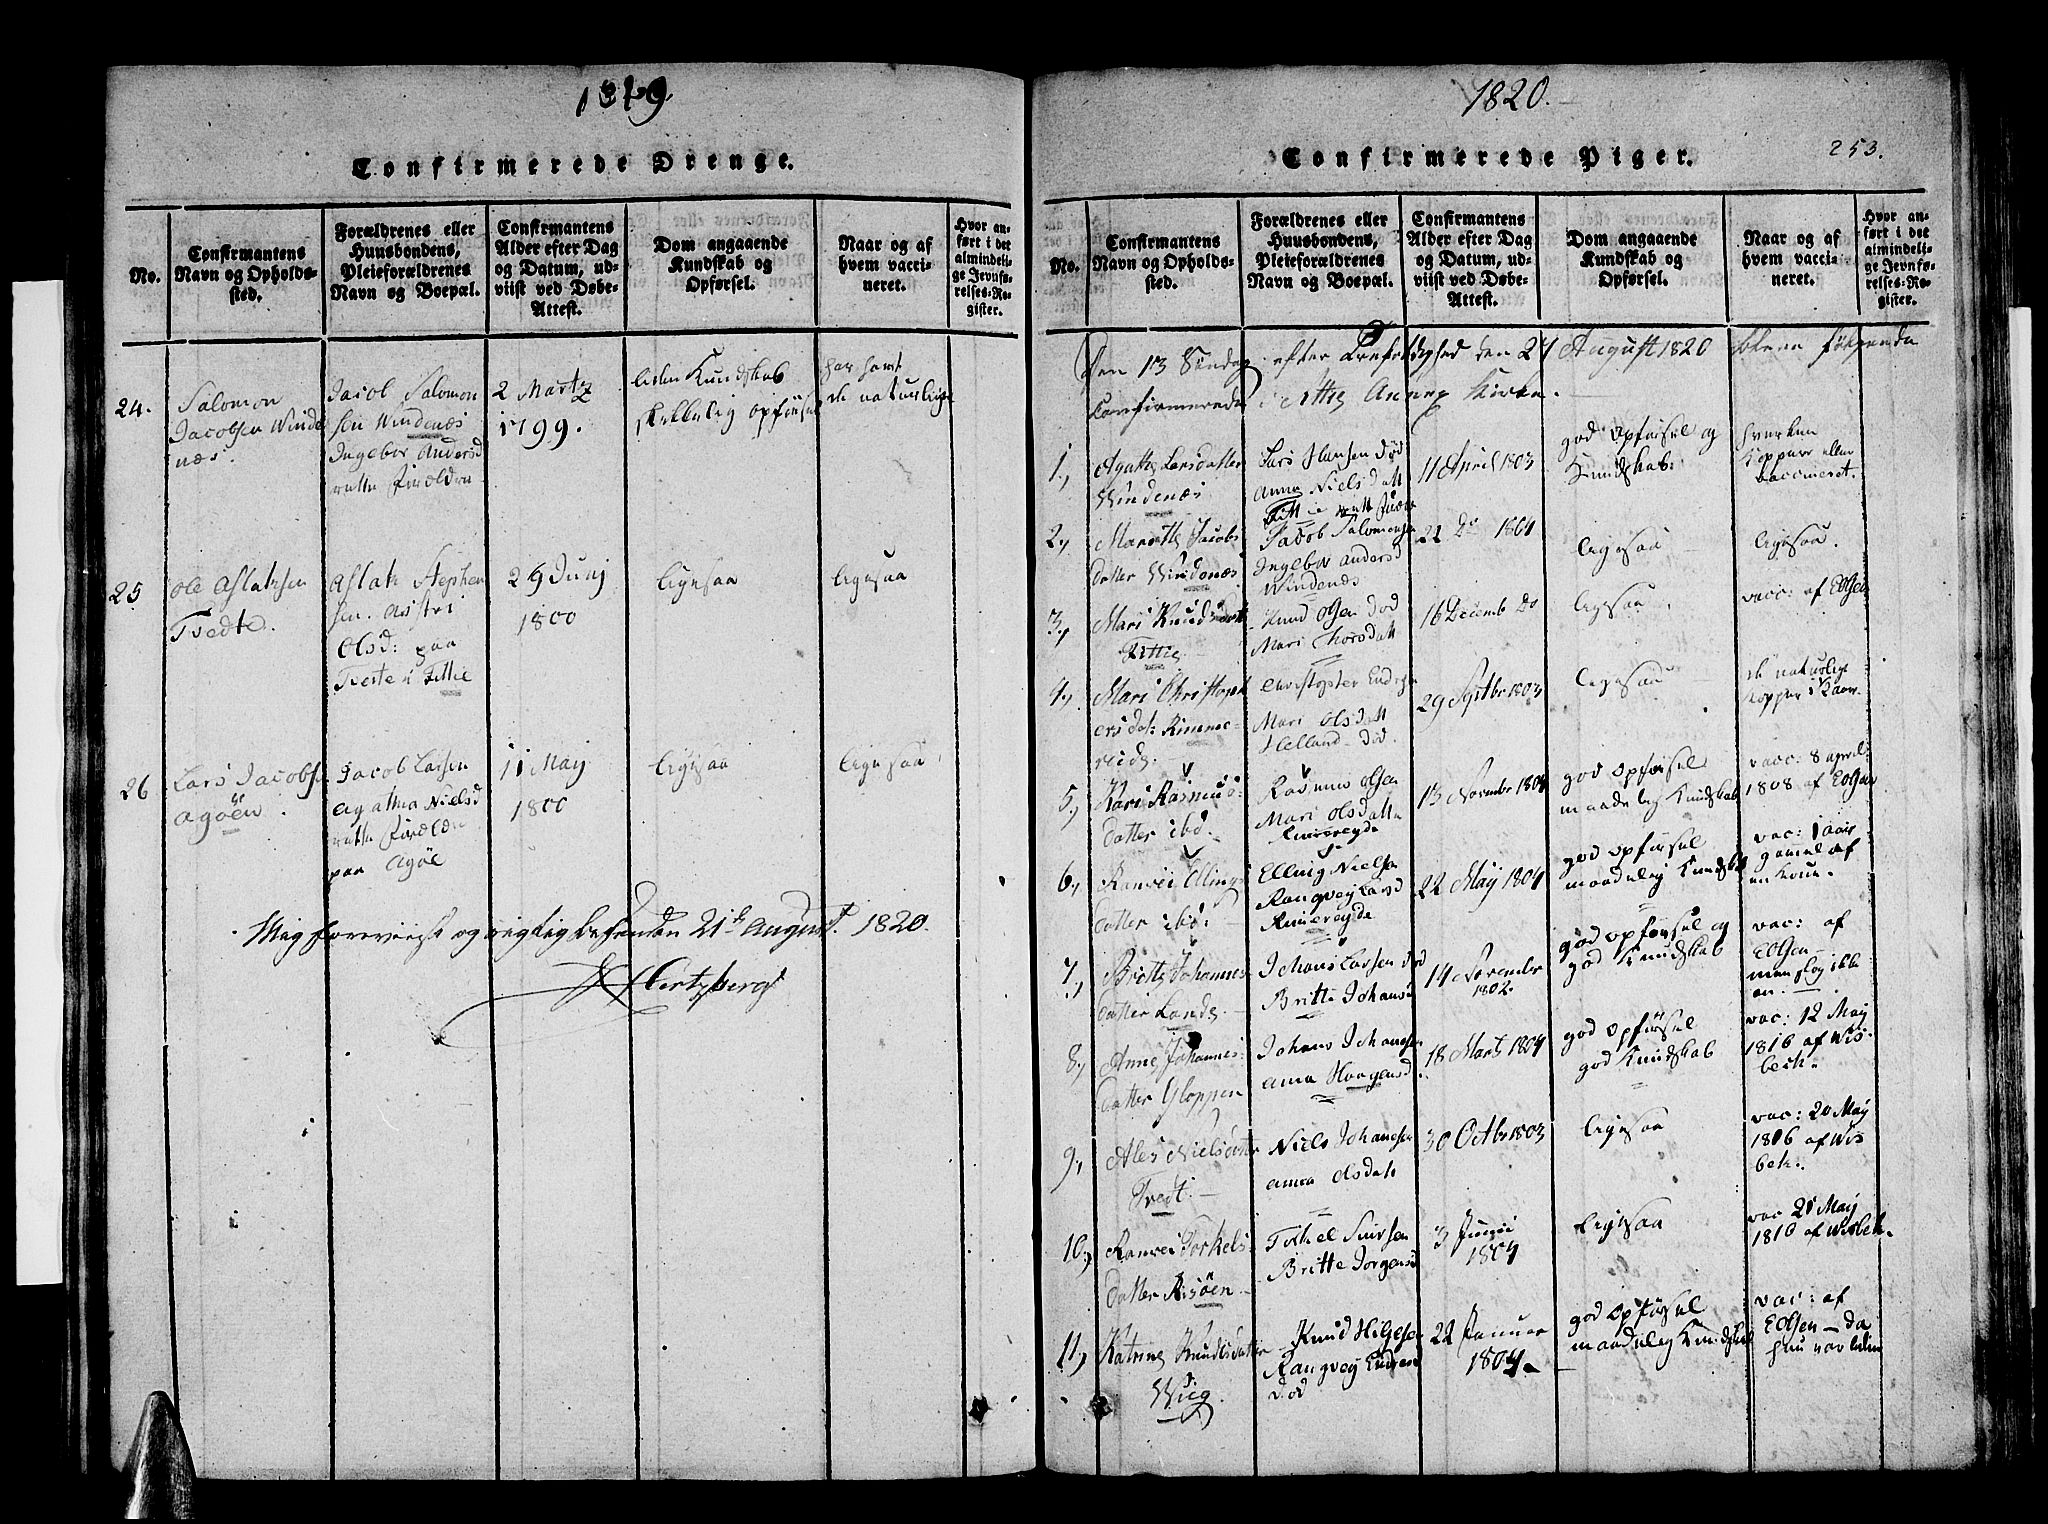 1819.
Confirmerede Drenge.
No.
Confirmantens
Navn og Opholds-
sted.
Forældrenes eller
Huusbondens,
Pleieforældrenes
Navn og Boepæl.
Confirmantens
Alder efter Dag
og Datum, ud-
viist ved Døbe-
Attest.
Dom angaaende
Kundskab og
Opførsel.
Naar og af
hvem vacci-
neret.
Hvor an-
ført i det
almindeli-
ge Jevnfø-
relses-Re-
gister.
24.
Salomon
Jacobsen Winde
næs.
Jacob Salomon
sen Windenæs
Ingebor Andersd
2 Martz
1799.
liden Kundskab
skikkelig opførsel
har havt
de naturlige
25
Ole Aslaksen
Tvedte.
Aslak Stephen
sen. Astri
Olsd: paa
Tvete i Fittie
29 Junj
1800
ligesaa
ligesaa
26
Lars Jacobse
Agöen.
Jacob Larsen
Agatha Nielsd
paa Agöe
11 May
1800
ligesaa
ligesaa
Mig foreviist og rigtig befunden 21de August 1820.
Hertzberg
1820.
Confirmerede Piger.
253.
No.
Confirmantens
Navn og Opholds-
sted.
Forældrenes eller
Huusbondens,
Pleieforældrenes
Navn og Boepæl.
Confirmantens
Alder efter Dag
og Datum, ud-
viist ved Døbe-
Attest.
Dom angaaende
Kundskab og
Opførsel.
Naar og af
hvem vacci-
neret.
Hvor an-
ført i det
almindeli-
ge Jevnfø-
relses-Re-
gister.
Den 13 Söndag efter Trefoldighed den 27 August 1820 bleve følgende
Confirmerede i Annex Kirke.
1.,
Agathe Larsdatter
Windenæs
Lars Hansen död
Anna Nielsdatt
11 April 1803
god Opförsel og
Kundskab.
hverken
Kopper eller
vaccineret.
2.,
Marethe Jacobs
datter Windenæs
Jacob Salomonsen
Ingebor Andersd
Windenæs
22 Do 1804
ligesaa
ligesaa.
3.,
Mari Knudsdatt
Fittie
Knud Olsen död
Mari Thorsdatt
16 Decemb Do
ligesaa
vacc: af EOlsen
4.,
Mari Christoph
ersdat: Rimme-
reide.
Christopher Endresen
Mari Olsdatt
Helland död.
29 Septbr 1803
ligesaa
de naturlige
Kopper
5.,
Kari Rasmus-
datter ibd.
Rasmus Olsen
Mari Olsdatte
13 Novembr 1804
god Opförsel
maadelig Kundskab
vacc: 8 april
1808 af EOlsen
6.,
Ranvei Ellings
datter ibd:
Elling Nielsen
Rangvey Larsd
22 May 1804
god Opförsel
maadelig Kundskab
vac: 1 aar
gamel af
en Kone.
7.,
Britte Johannes
datter Lande.
Johans Larsen död
Britte Johansd
14 November
1802.
god Opförsel og
god Kundskab
vac: af
EOlsen
men slog ikke
an.
8.,
Anne Johannes-
datter Gloppen
Johans Johansen
Anna Haagensd.
18 Marts 1804
god Opförsel
god Kundskab
vac: 12 May
1816 af Wis-
bech.
9.,
Ales Nielsdatter
Tvedt.
Niels Johansen
Anna Olsdatt
30 Octbr 1803
ligesaa
vac: 20 May
1816 af Wis
bek.
10.,
Ranvei Torkels-
datter Risöen
Torkel Siursen
Britte Jorgensd
3 Junii
1804
ligesaa
vac 20 May
1816 af Wisbek.
11.,
Katrine Knudsdatter
Wiig.
Knud Helgesen
Rangvey Endresd
död
22 Januar
1804.
god Opförsel
maadelig Kundskab
vac: af
EOlsen - da
hun var liden